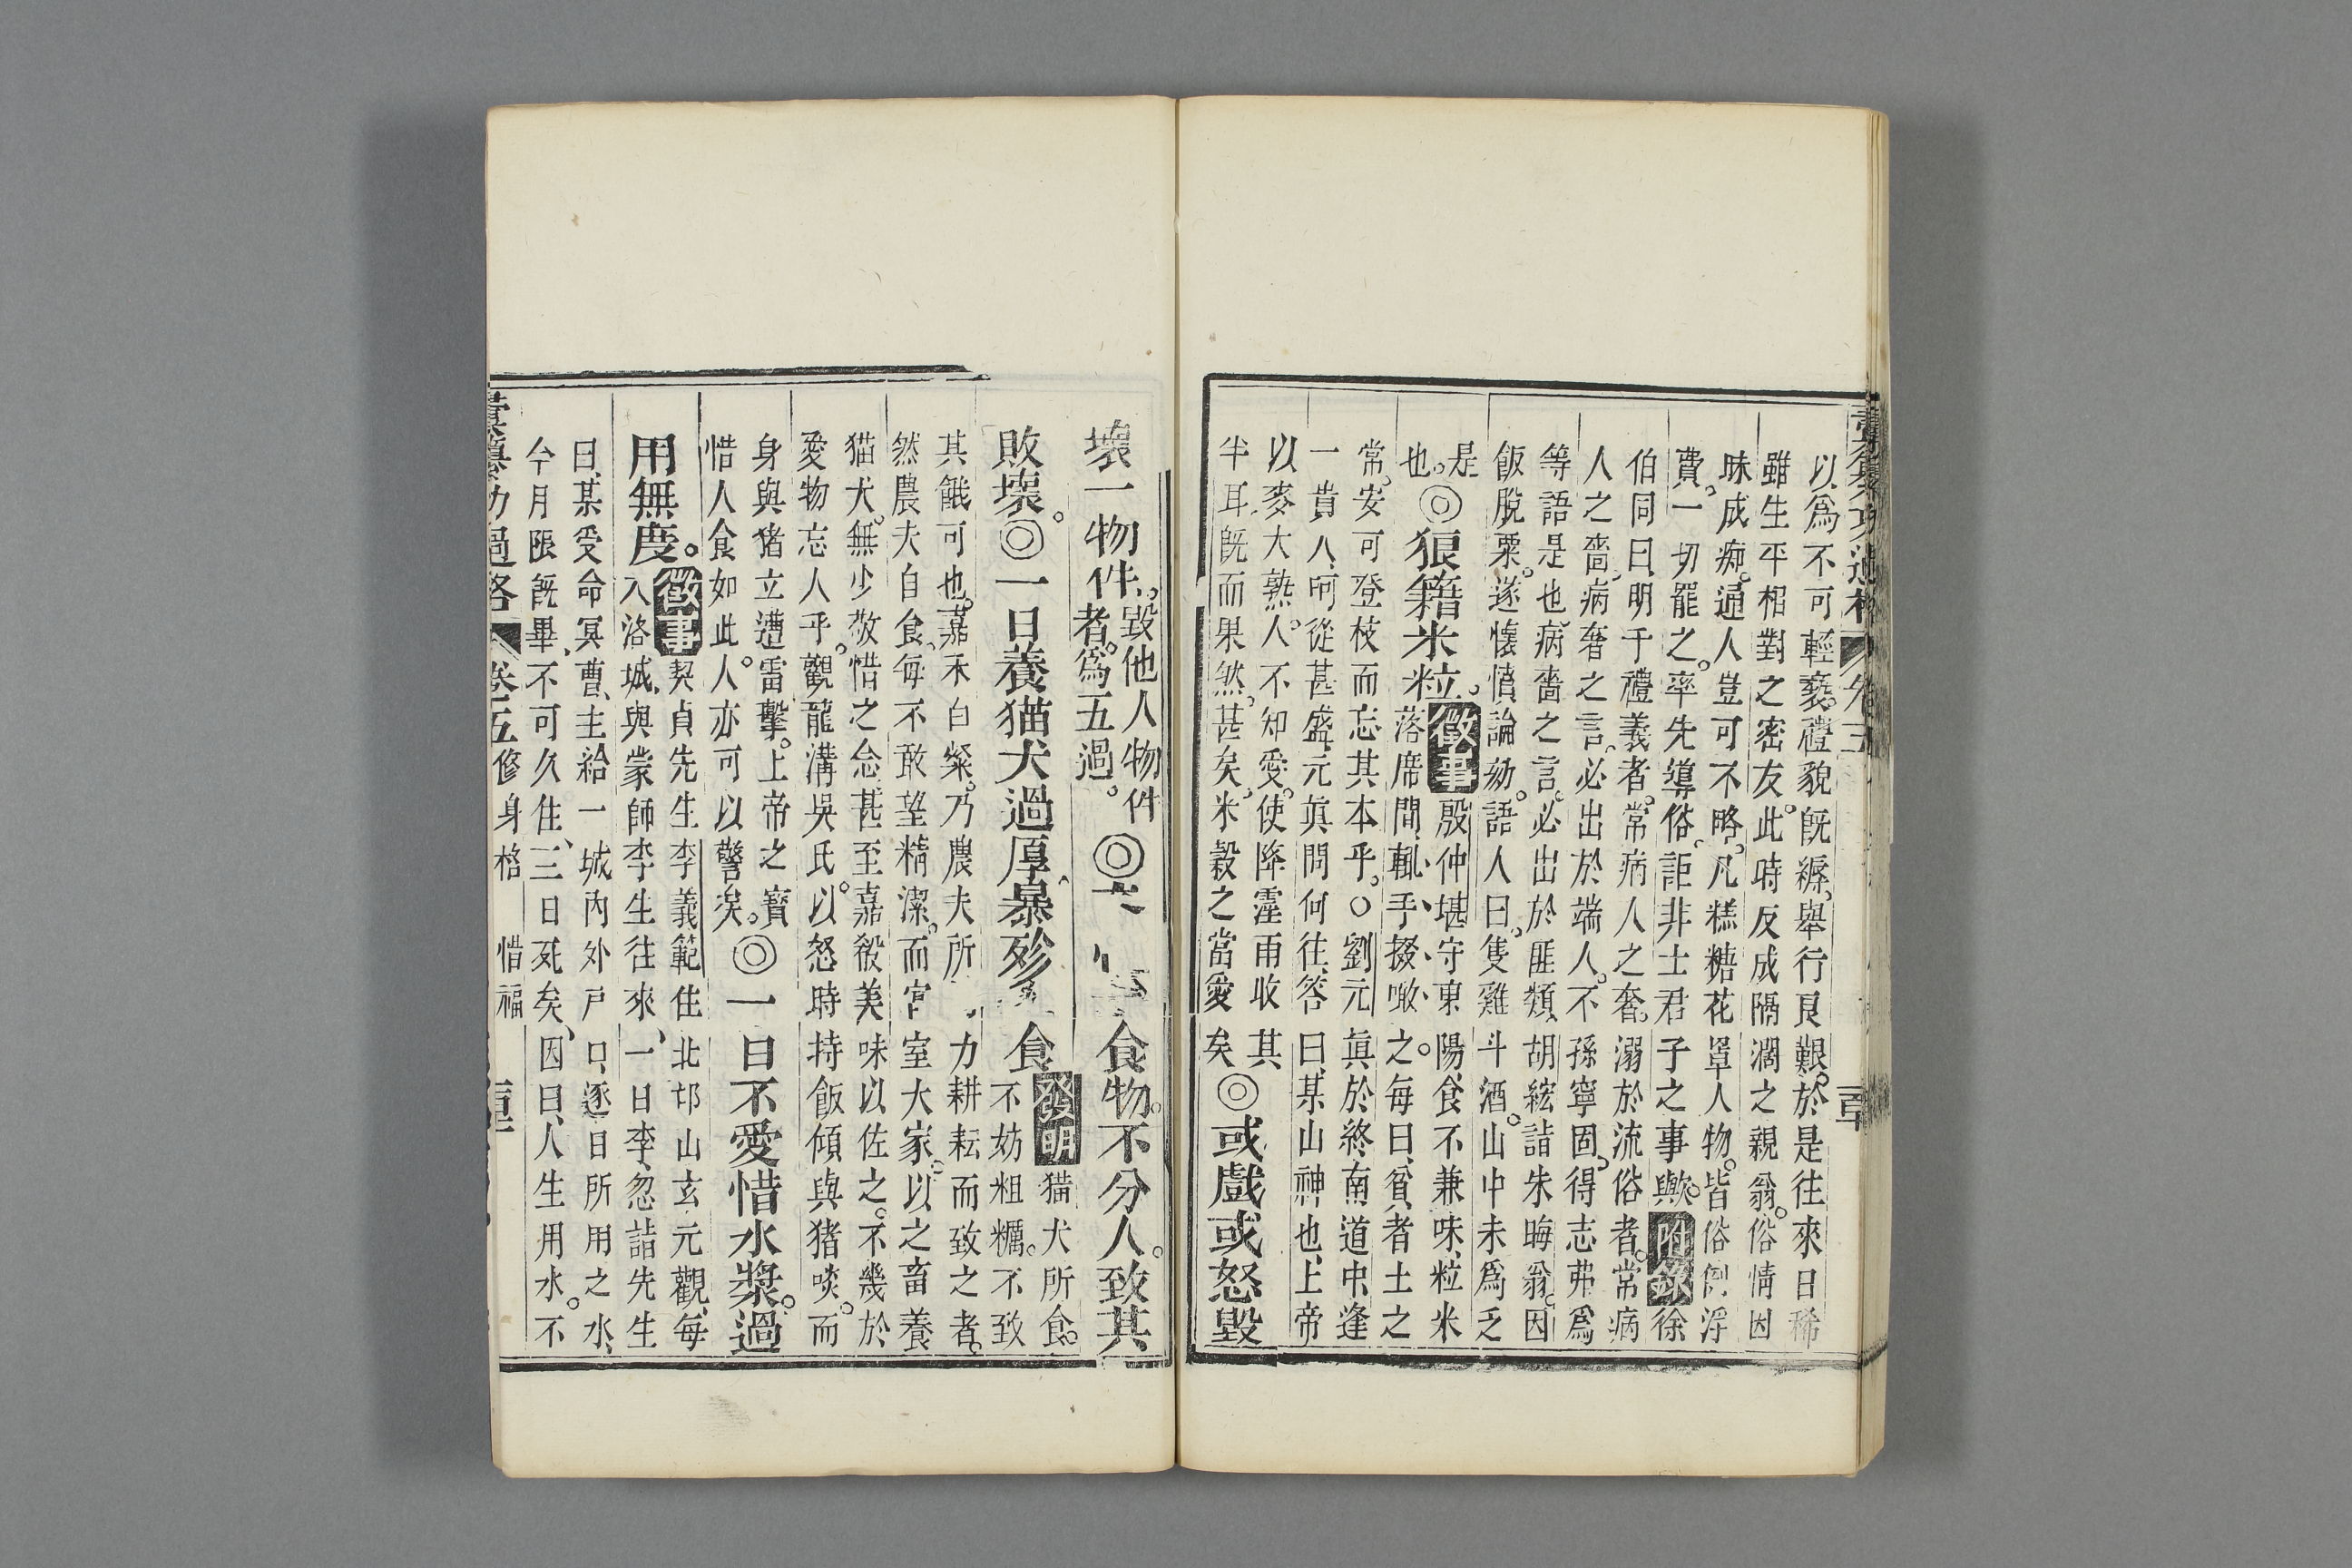 以爲不可輕褻。禮貌旣縟、舉行艮艱。於是往來日稀
雖生平相對之密友。此時反成隔濶之親翁。俗情因
昧成痴。通人豈可不略。凡糕糖花罩人物。皆俗例浮
費。一切罷之。率先導俗、詎非士君子之事歟。附錄徐
伯同曰、明于禮義者。常病人之奢。溺於流俗者。常病
人之嗇。病奢之言。必出於端人。不孫寧固。得志弗爲
等語是也、病嗇之言。必出於匪類、胡紘詰朱晦翁。因
飯脫粟。遂懷憤論劾。語人曰。隻雞斗酒。山中未爲乏
是也。◎狼籍米粒。徵事殷仲堪守東陽、食不兼味、粒米
落席間、輒手掇噉之。每曰、貧者士之
常。安可登枝而忘其本乎。○劉元眞於終南道中、逢
一貴人、呵從甚盛、元眞問何往、答曰、某山神也、上帝
以麥大熟。人不知愛。使降霪雨收其
半耳、旣而果然。甚矣、米穀之當愛矣◎或戲或怒毀
壞一物件。毀他人物件者。爲五過。◎食物。不分人。致其
敗壞。◎一日養猫犬過厚、暴殄食發明猫犬所食。
不妨粗糲。不致
其餓可也。嘉禾白粲。乃農夫所力耕耘而致之者。
然農夫自食、每不敢望精潔。而官室大家。以之畜養
猫犬。無少敬惜之念、甚至嘉殽美味以佐之。不幾於
愛物忘人乎。觀龍溝吳氏。以怒時持飯傾與猪啖。而
身與猪立遭雷擊。上帝之寶
惜人食如此。人亦可以警矣。◎一日不愛惜水漿。過
用無度。徵事契貞先生李義範住北邙山玄元觀、每
入洛城、與蒙師李生往來、一日李忽詰先生
曰、某受命冥曹、主給一城內外戶口、逐日所用之水、
今月限旣畢、不可久住、三日死矣、因曰、人生用水。不
功過格 卷五修身格 惜福